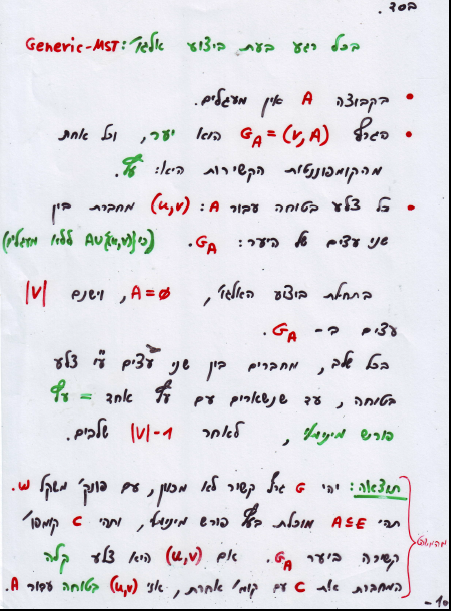 בס"ד.
בכל רגע בעת ביצוע אלג' Generic-MST:
• בקבוצה A אין מעגלים.
• הגרף G_A = (V, A) הוא יער, וכל אחת
מהקומפוננטות הקשירות היא: עץ.
• כל צלע בטוחה עבור A: (u,v) מחברת בין
שני עצים של היער: G_A. (כי A∪{(u,v)} ללא מעגלים)
בתחילת ביצוע האלג', A=∅, וישנם |V|
עצים ב- G_A.
בכל שלב, מחברים בין שני עצים ע"י צלע
בטוחה, עד שנשארים עם עץ אחד = עץ
פורש מינימלי, לאחר |V|-1 שלבים.
תוצאה: יהי G גרף קשיר לא מכוון, עם פונק' משקל w.
תהי A⊆E מוכלת בעץ פורש מינימלי, ותהי C קומפו'
קשירה ביער G_A. אם (u,v) היא צלע קלה
המחברת את C עם קומ' אחרת, אזי (u,v) בטוחה עבור A.
-10